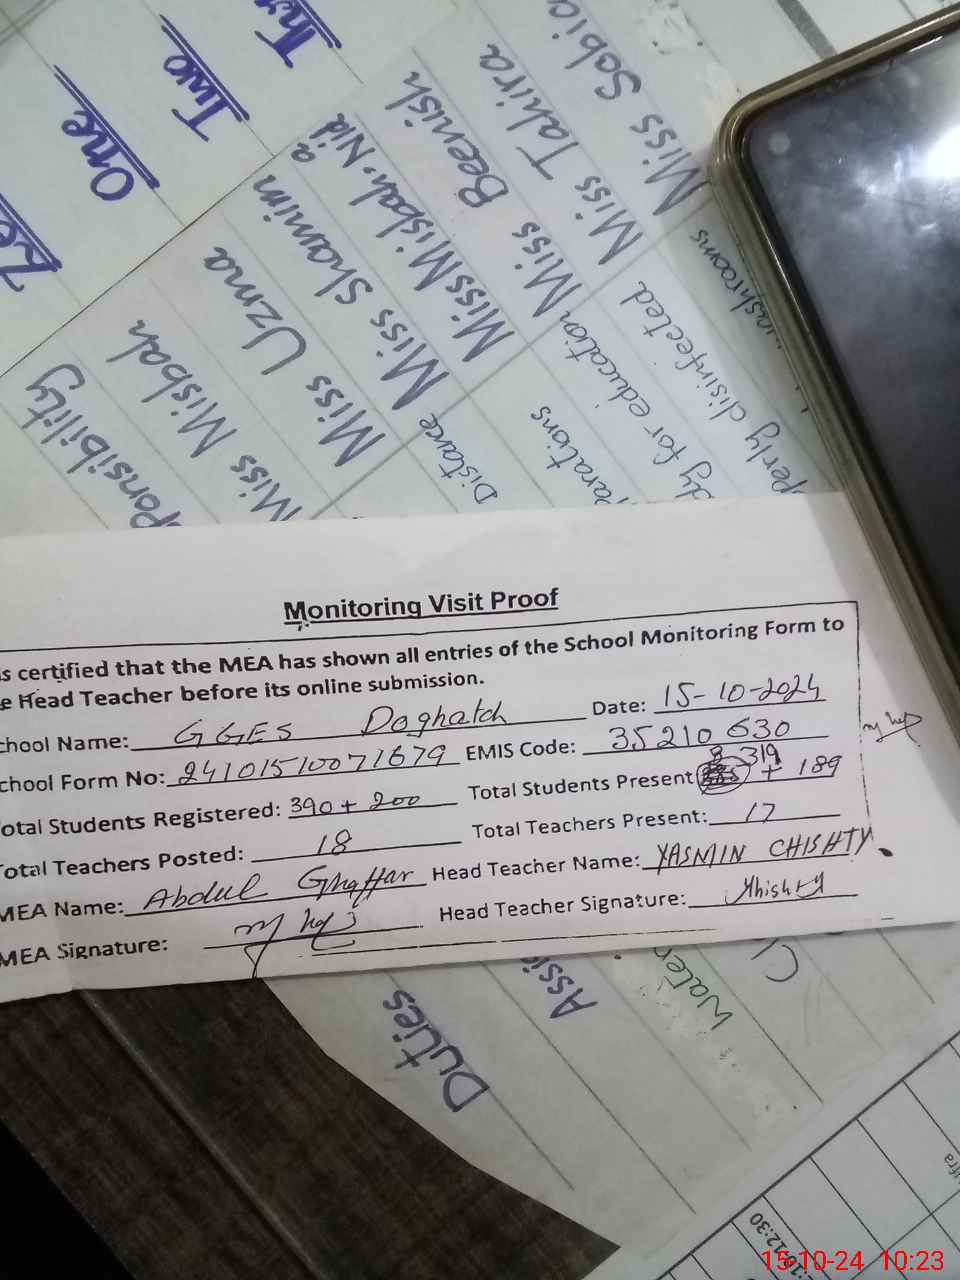 Two
One
ponsibility
Miss Misbah
Miss Uzma
Miss Shamim
a
Miss Misbah. Nid
Miss Beenish
Miss Tahira
Miss Sobia
Distance
education
dy for
perations
perly disinfected.
washrooms
Monitoring Visit Proof
s certified that the MEA has shown all entries of the School Monitoring Form to
e Head Teacher before its online submission.
chool Name: GGES Doghatch Date: 15-10-2024
chool Form No: 24101510071679 EMIS Code: 35210630
otal Students Registered: 390 + 200 Total Students Present 319 + 189
otal Teachers Posted: 18 Total Teachers Present: 17
MEA Name: Abdul Ghaffar Head Teacher Name: YASMIN CHISHTY.
MEA Signature: Head Teacher Signature: Yhishty
Duties
Assi
Water
Cl
12:30
15-10-24 10:23